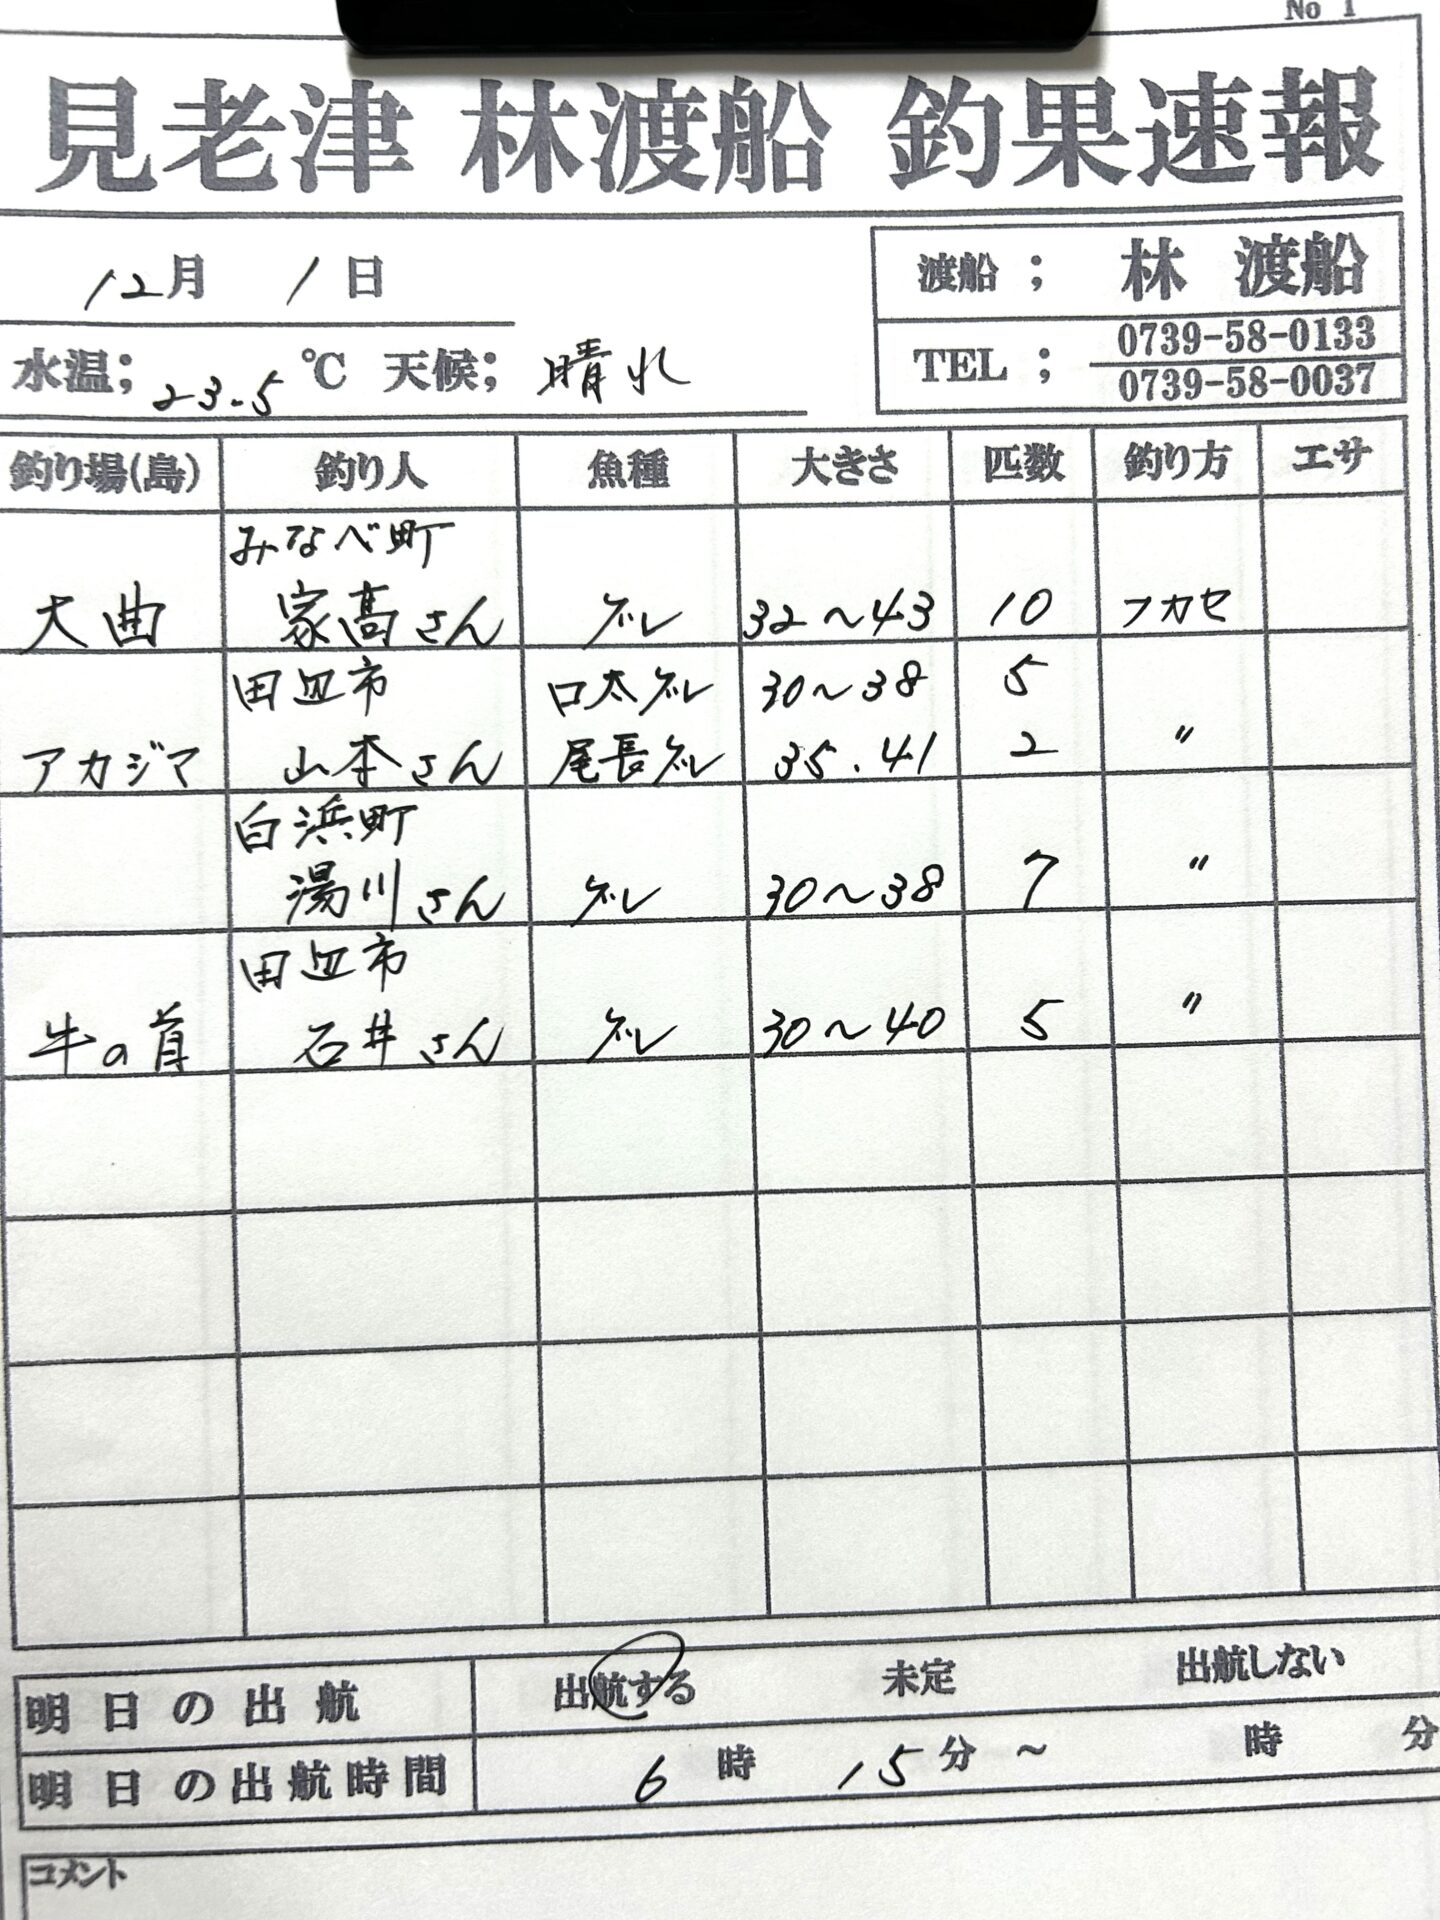 No 1
見老津 林渡船 釣果速報
12月 1日
渡船 ; 林 渡船
水温; 23.5 ℃ 天候; 晴れ
TEL ; 0739-58-0133
0739-58-0037
釣り場(島) 釣り人 魚種 大きさ 匹数 釣り方 エサ
みなべ町
大曲 家高さん グレ 32〜43 10 フカセ
田辺市 口太グレ 30〜38 5
アカジマ 山本さん 尾長グレ 35.41 2 〃
白浜町
湯川さん グレ 30〜38 7 〃
田辺市
牛の首 石井さん グレ 30〜40 5 〃
明日の出航 出航する 未定 出航しない
明日の出航時間 6時 15分〜 時 分
コメント